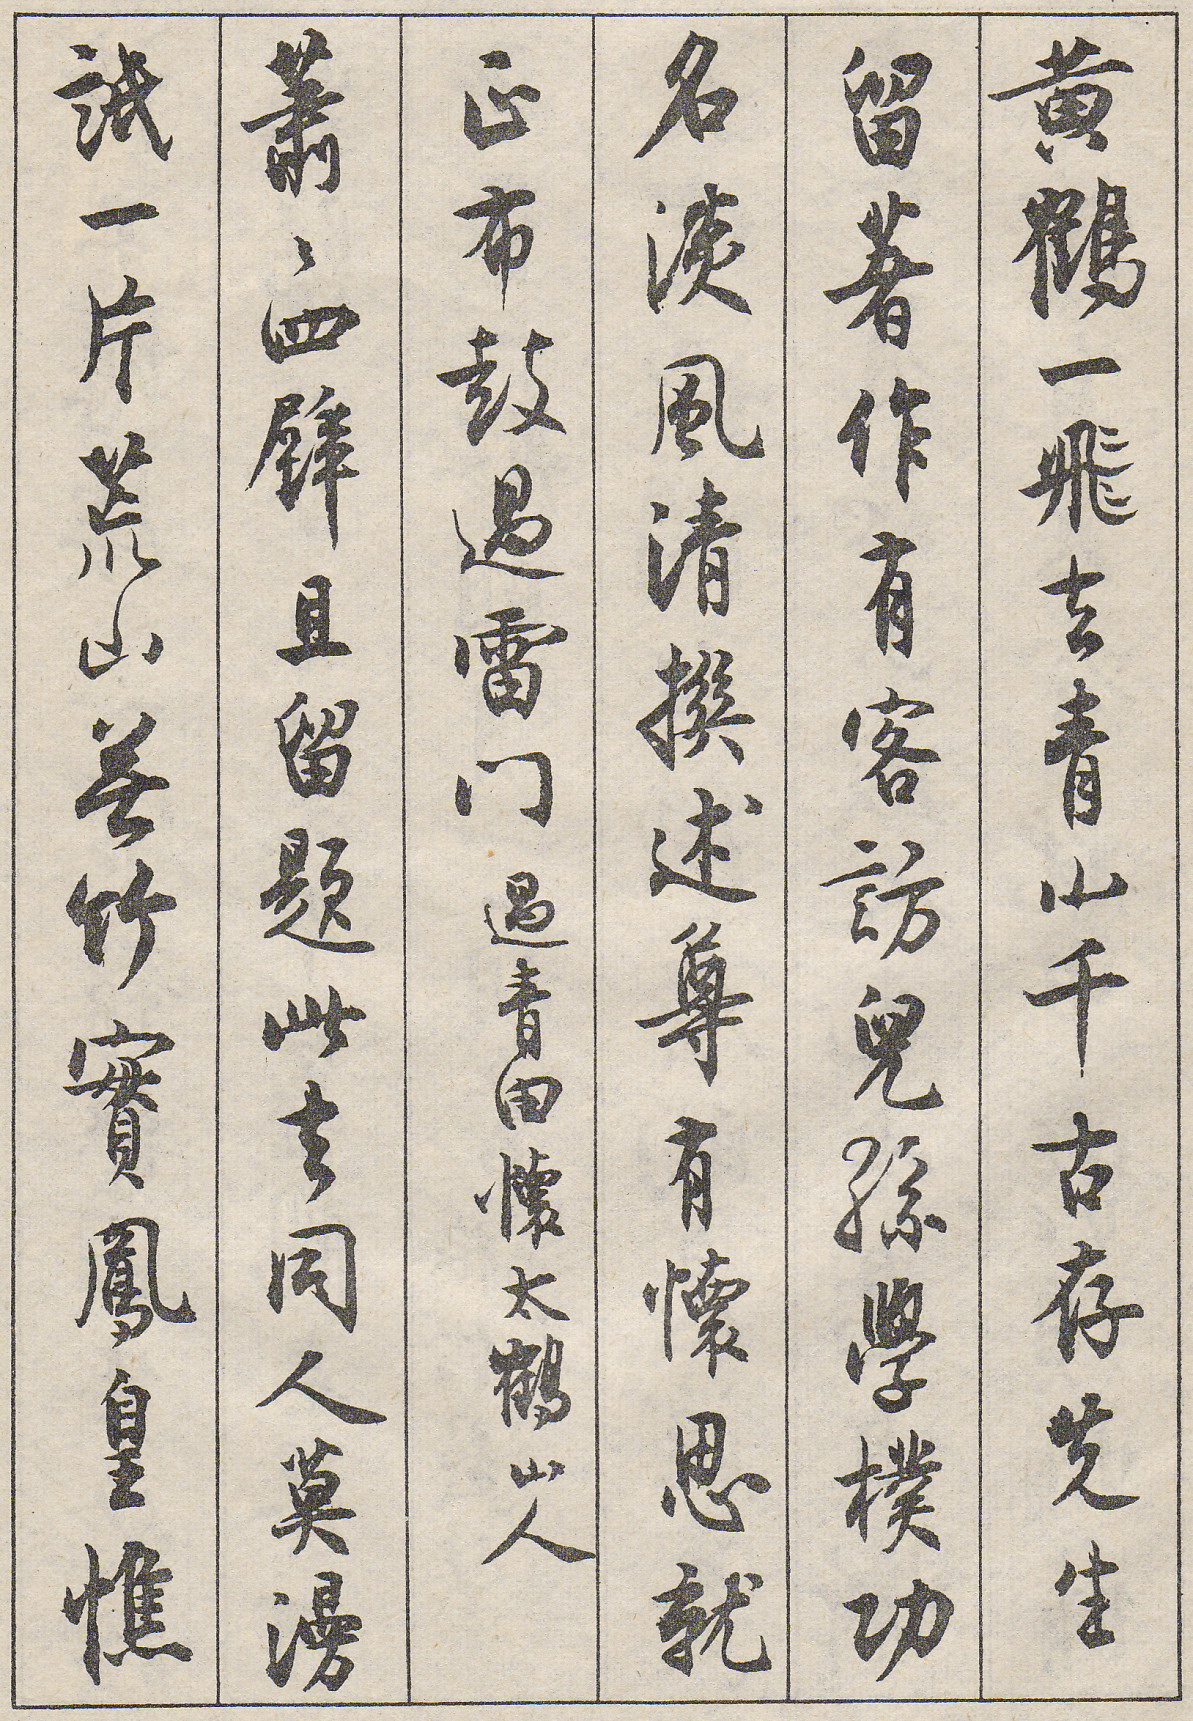 黃鶴一飛去青山千古存先生
留著作有客訪兒孫學樸功
名淡風清撰述尊有懷思就
正布鼓過雷门過青田懷太鶴山人
蕭〻四壁且留題此去同人莫漫
詆一片荒山無竹實鳳皇憔